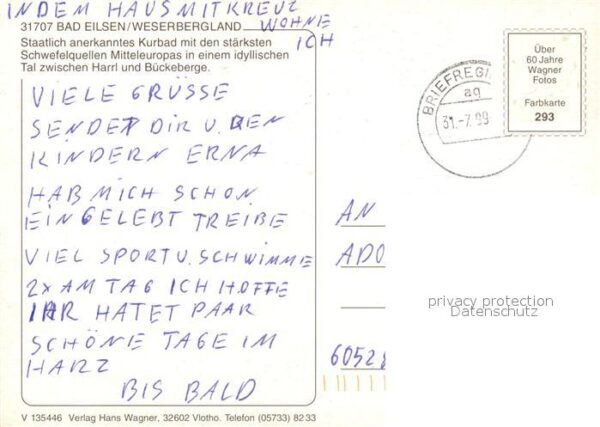 IN DEM HAUS MIT KREUZ
WOHNE
ICH
31707 BAD EILSEN/WESERBERGLAND
Staatlich anerkanntes Kurbad mit den stärksten
Schwefelquellen Mitteleuropas in einem idyllischen
Tal zwischen Harrl und Bückeberge.
VIELE GRÜSSE
SENDET DIR U. DEN
KINDERN ERNA
HAB MICH SCHON
EINGELEBT TREIBE
VIEL SPORT U. SCHWIMME
2X AM TAG ICH HOFFE
IHR HATET PAAR
SCHÖNE TAGE IM
HARZ
BIS BALD
V 135446 Verlag Hans Wagner, 32602 Vlotho. Telefon (05733) 8233
BRIEFREGI
ag
31.-7.99
Über
60 Jahre
Wagner
Fotos
Farbkarte
293
AN
ADO
6052
privacy protection
Datenschutz